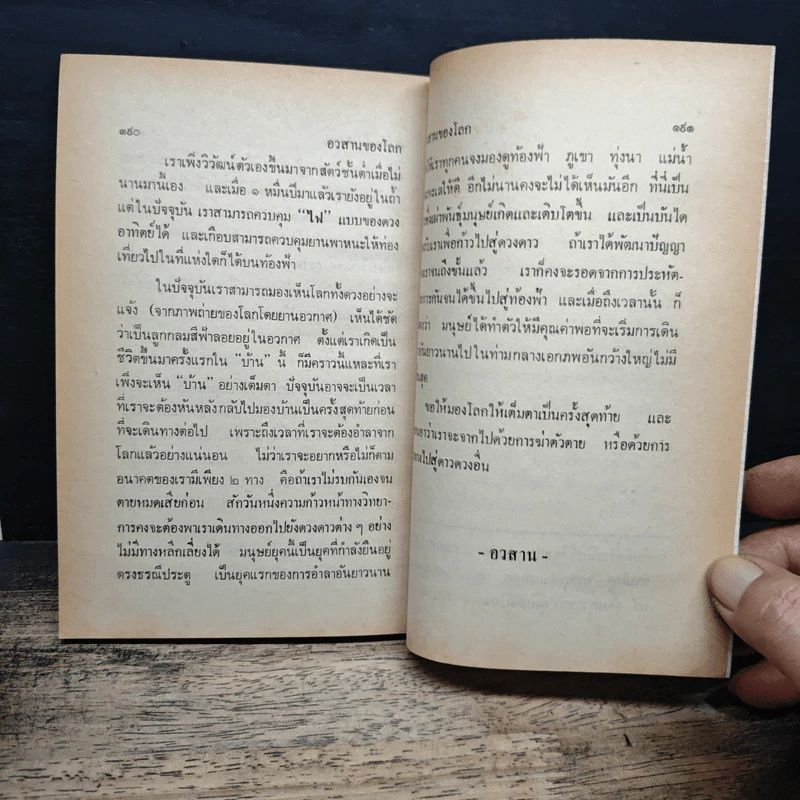 ๑๙๐
อวสานของโลก
เราเพิ่งวิวัฒน์ตัวเองขึ้นมาจากสัตว์ชั้นต่ำเมื่อไม่
นานมานี้เอง และเมื่อ ๑ หมื่นปีมาแล้วเรายังอยู่ในถ้ำ
แต่ในปัจจุบัน เราสามารถควบคุม “ไฟ” แบบของดวง
อาทิตย์ได้ และเกือบสามารถควบคุมยานพาหนะให้ท่อง
เที่ยวไปในที่แห่งใดก็ได้บนท้องฟ้า
ในปัจจุบันเราสามารถมองเห็นโลกทั้งดวงอย่างจะ
แจ้ง (จากภาพถ่ายของโลกโดยยานอวกาศ) เห็นได้ชัด
ว่าเป็นลูกกลมสีฟ้าลอยอยู่ในอวกาศ ตั้งแต่เราเกิดเป็น
ชีวิตขึ้นมาครั้งแรกใน “บ้าน” นี้ ก็มีคราวนี้แหละที่เรา
เพิ่งจะเห็น “บ้าน” อย่างเต็มตา ปัจจุบันอาจจะเป็นเวลา
ที่เราจะต้องหันหลังกลับไปมองบ้านเป็นครั้งสุดท้ายก่อน
ที่จะเดินทางต่อไป เพราะถึงเวลาที่เราจะต้องอำลาจาก
โลกแล้วอย่างแน่นอน ไม่ว่าเราจะอยากหรือไม่ก็ตาม
อนาคตของเรามีเพียง ๒ ทาง คือถ้าเราไม่รบกันเองจน
ตายหมดเสียก่อน สักวันหนึ่งความก้าวหน้าทางวิทยา-
การคงจะต้องพาเราเดินทางออกไปยังดวงดาวต่าง ๆ อย่าง
ไม่มีทางหลีกเลี่ยงได้ มนุษย์ยุคนี้เป็นยุคที่กำลังยืนอยู่
ตรงธรณีประตู เป็นยุคแรกของการอำลาอันยาวนาน
สานของโลก
๑๙๑
ให้เราทุกคนจงมองดูท้องฟ้า ภูเขา ทุ่งนา แม่น้ำ
ทะเลให้ดี อีกไม่นานคงจะไม่ได้เห็นมันอีก ที่นี่เป็น
เผ่าพันธุ์มนุษย์เกิดและเติบโตขึ้น และเป็นบันได
เราเพื่อก้าวไปสู่ดวงดาว ถ้าเราได้พัฒนาปัญญา
จนถึงขั้นแล้ว เราก็คงจะรอดจากการประหัต-
การกันจนได้ขึ้นไปสู่ท้องฟ้า และเมื่อถึงเวลานั้น ก็
ว่า มนุษย์ได้ทำตัวให้มีคุณค่าพอที่จะเริ่มการเดิน
อันยาวนานไปในท่ามกลางเอกภพอันกว้างใหญ่ไม่มี
สุด
ขอให้มองโลกให้เต็มตาเป็นครั้งสุดท้าย และ
เอาว่าเราจะจากไปด้วยการฆ่าตัวตาย หรือด้วยการ
ทางไปสู่ดาวดวงอื่น
- อวสาน -